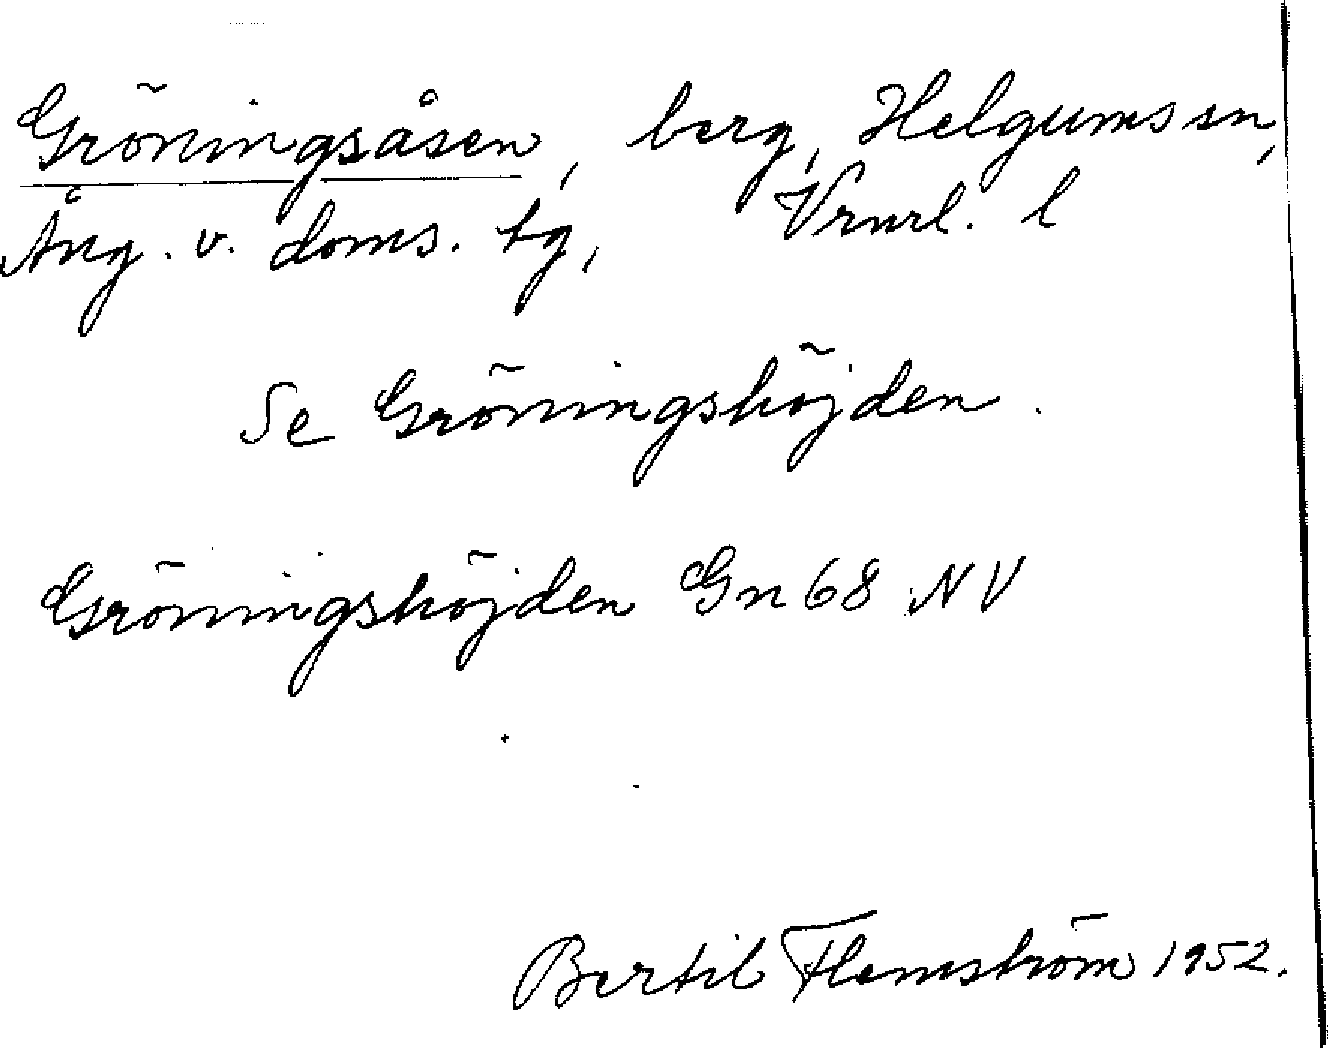 Gröningsåsen, berg, Helgums sn,
Ång. v. doms. tg, Vrnrl. l
Se Gröningshöjden.
Gröningshöjden Gn 68 NV
Bertil Flemström 1952.